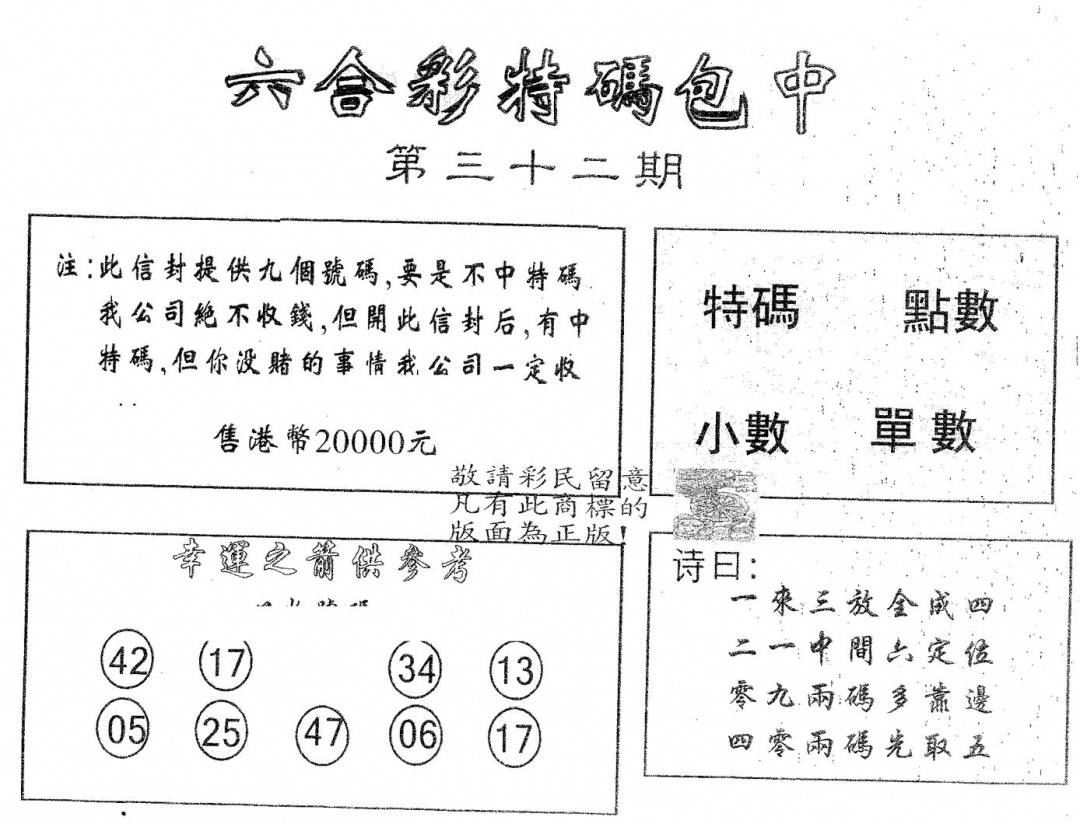 六合彩特碼包中
第三十二期
注:此信封提供九個號碼,要是不中特碼
我公司絕不收錢,但開此信封后,有中
特碼,但你没賭的事情我公司一定收
售港幣20000元
特碼 點數
小數 單數
敬請彩民留意
凡有此商標的
版面為正版!
幸運之箭供參考
42 17 34 13
05 25 47 06 17
诗曰:
一來三放金成四
二一中間六定位
零九兩碼多靠邊
四零兩碼先取五